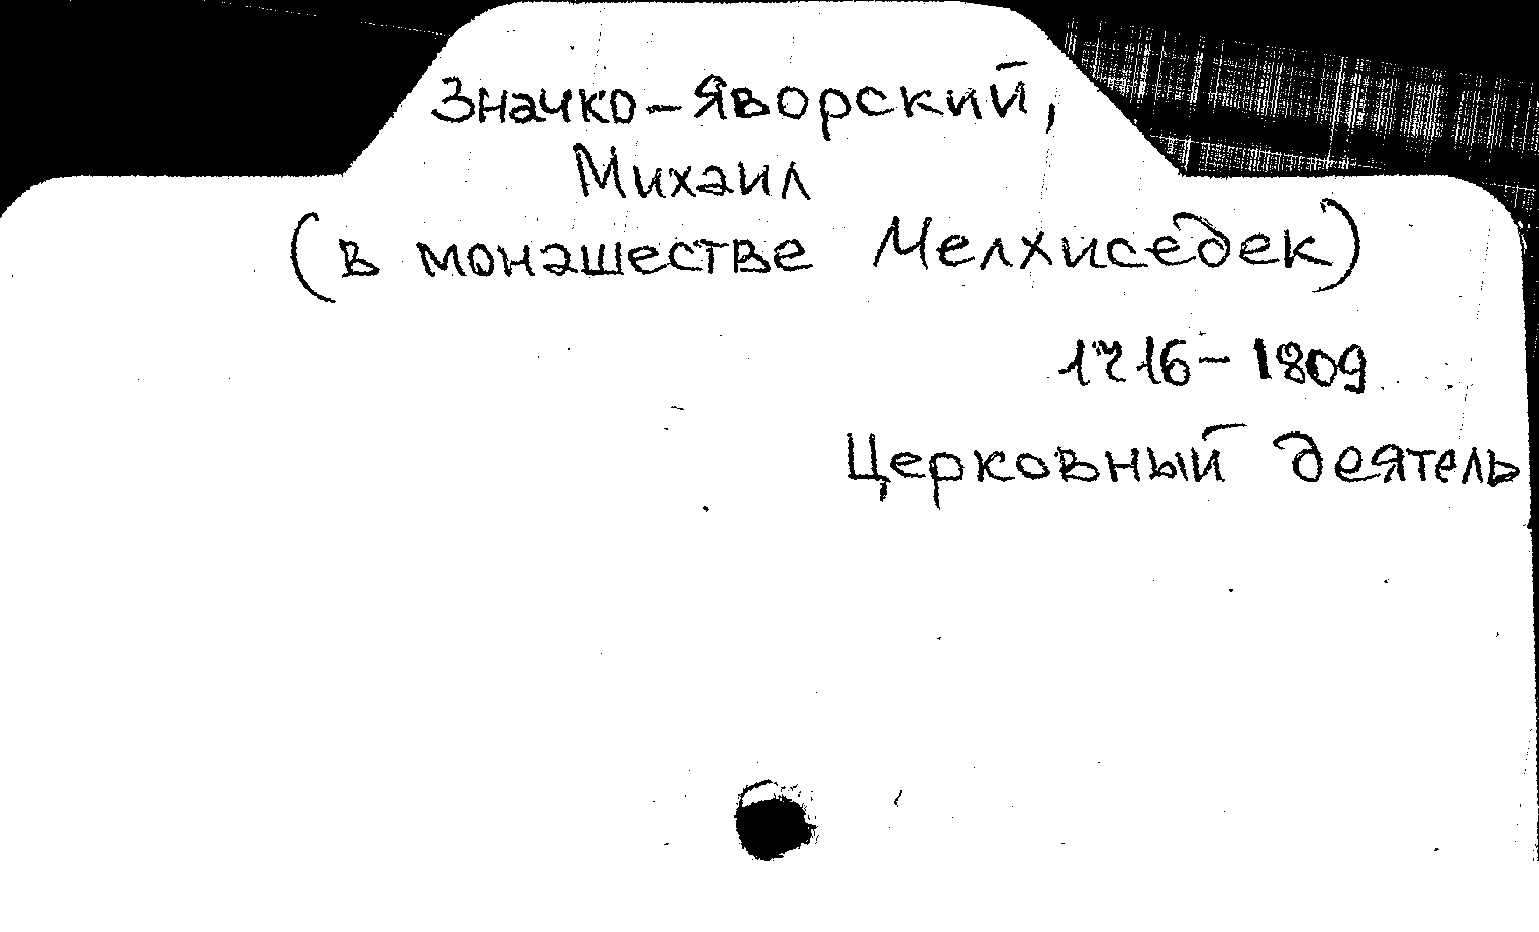 Значко-Яворский,
Михаил
(в монашестве Мелхиседек)
1716-1809
Церковный деятель